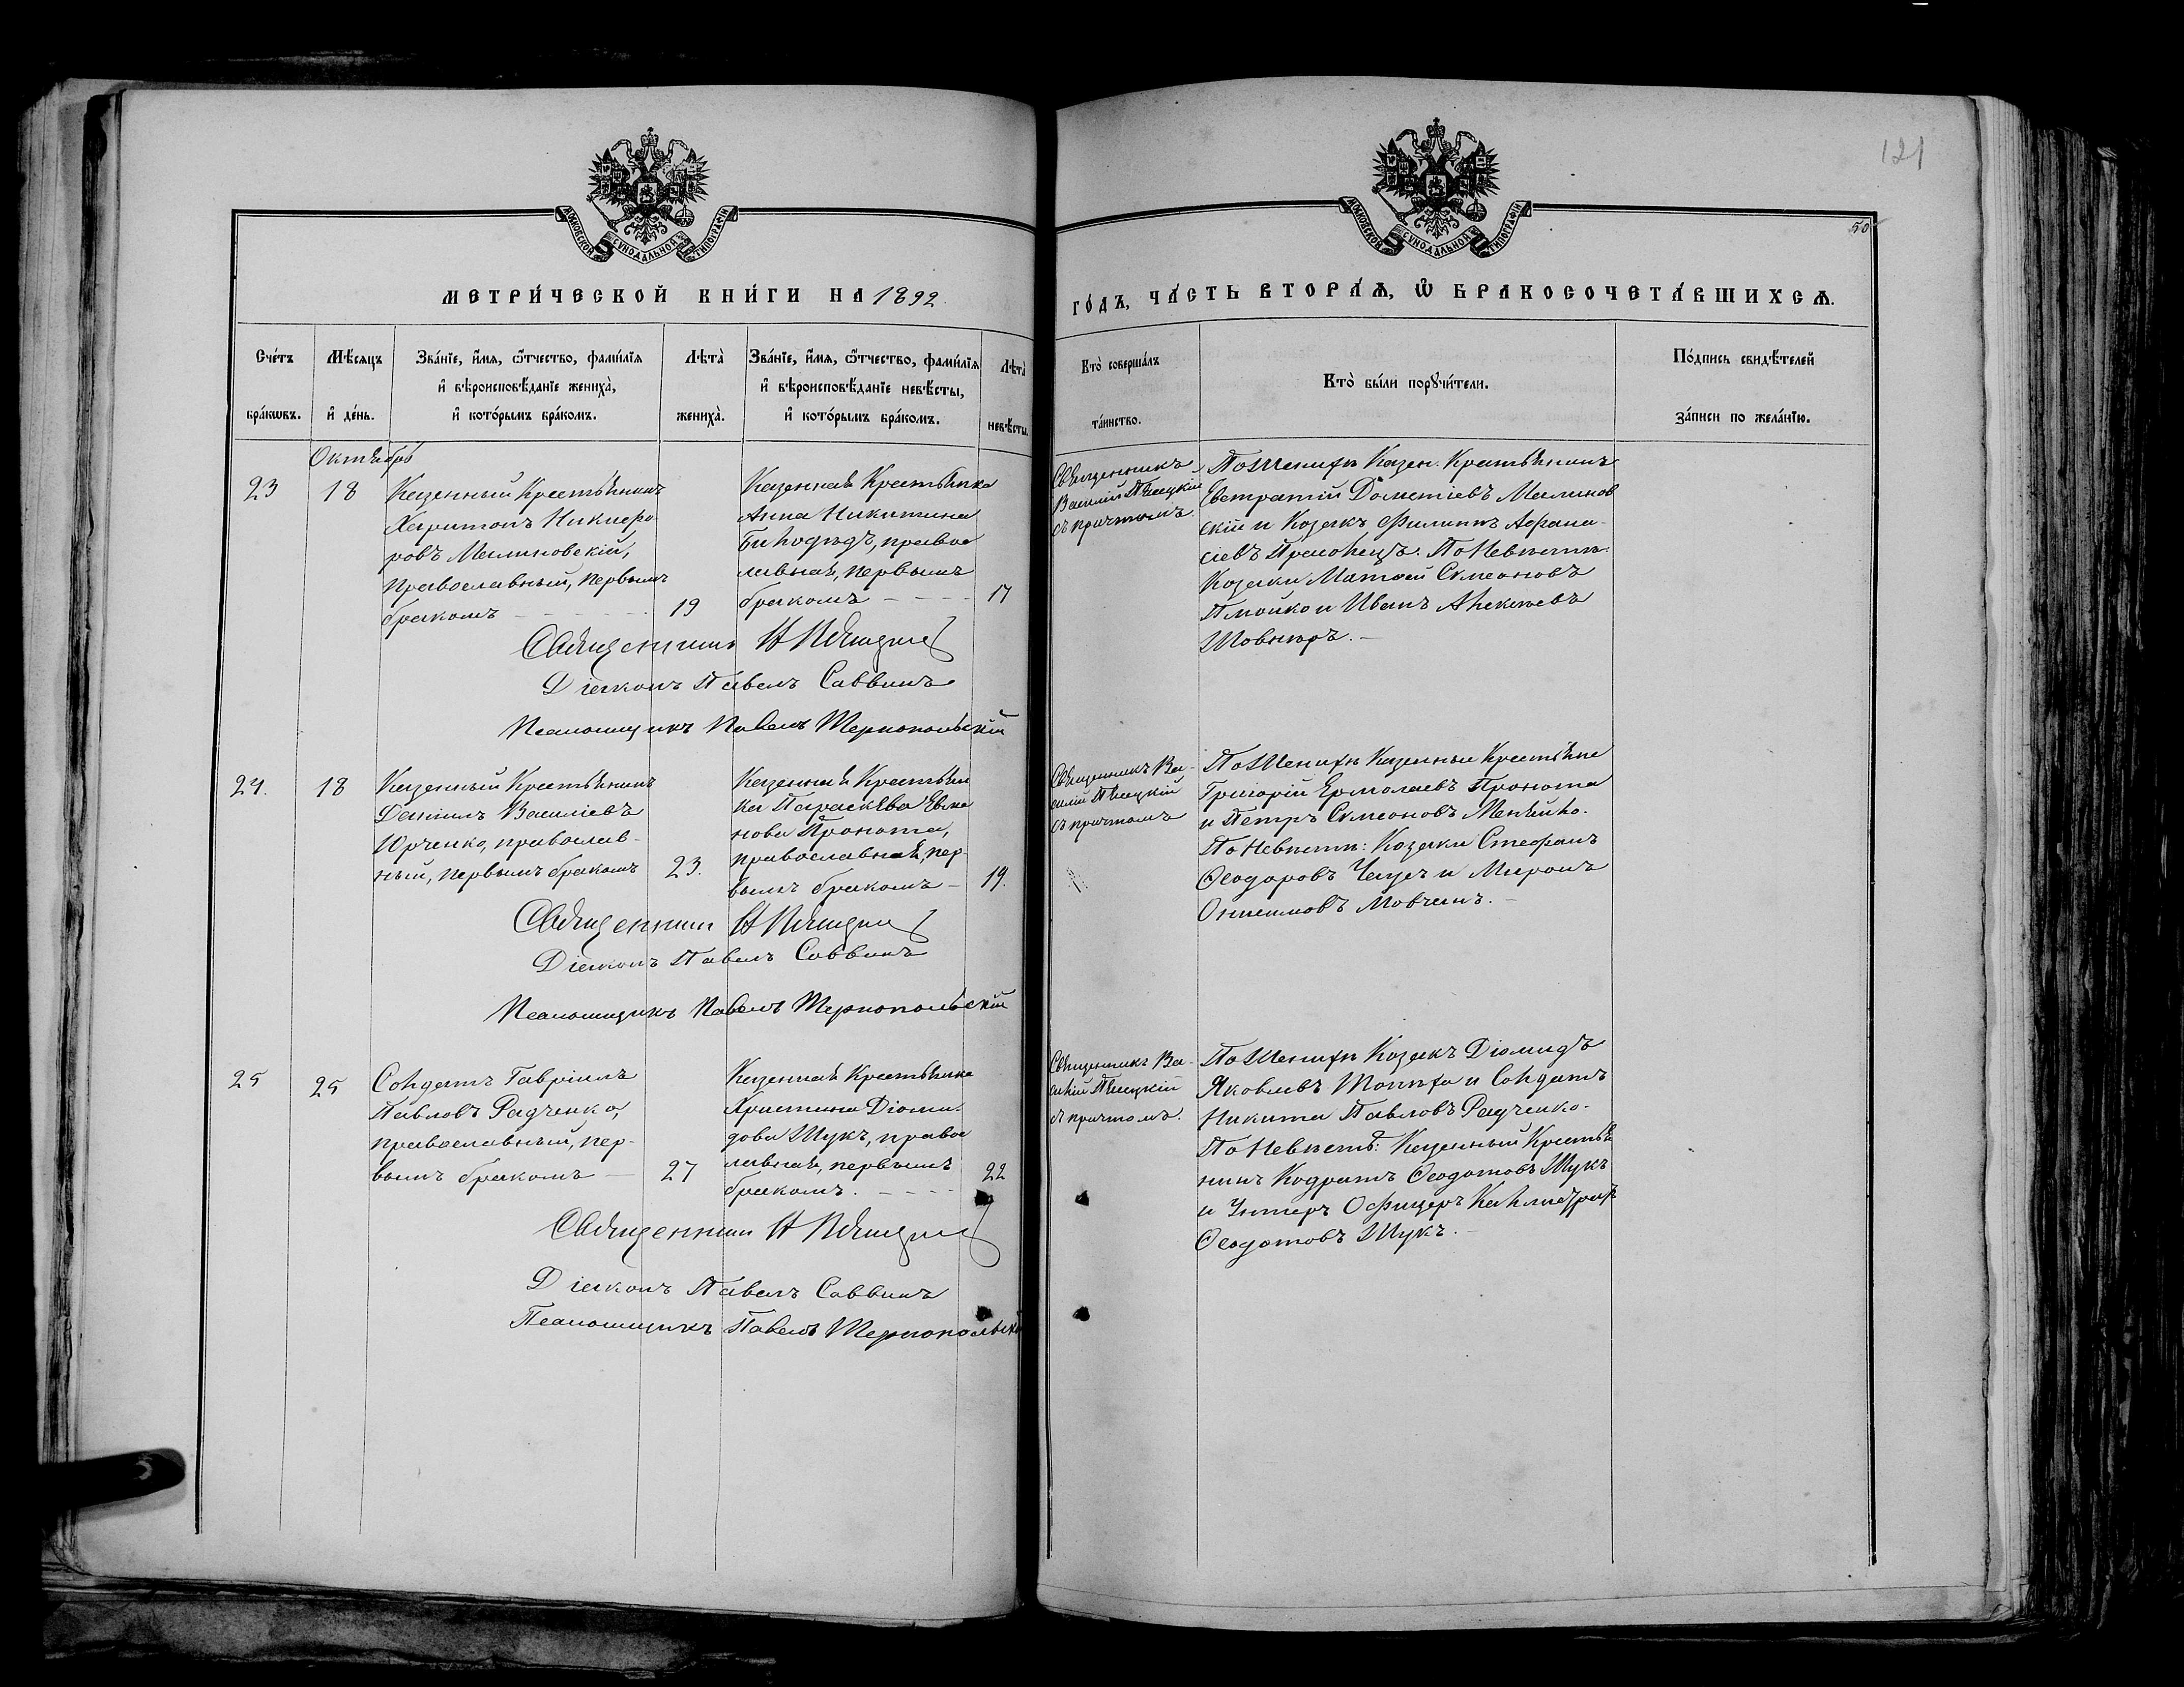 121
50
МОСКОВСКОЙ СѴНОДАЛЬНОЙ ТИПОГРАФІИ
МОСКОВСКОЙ СѴНОДАЛЬНОЙ ТИПОГРАФІИ
МЕТРИ́ЧЕСКОЙ КНИ́ГИ НА 1892
ГО́ДЪ, ЧА́СТЬ ВТОРА́Ѧ, Ѽ БРАКОСОЧЕТА́ВШИХСѦ.
Сче́тъ бра́кѡвъ.
Мѣ́сѧцъ и҆ де́нь.
Зва́нїе, и҆́мѧ, ѻ҆́тчество, фами́лїѧ
и҆ вѣроисповѣ́данїе жениха̀,
и҆ кото́рымъ бра́комъ.
Лѣта̀ жениха̀.
Зва́нїе, и҆́мѧ, ѻ҆́тчество, фами́лїѧ
и҆ вѣроисповѣ́данїе невѣ́сты,
и҆ кото́рымъ бра́комъ.
Лѣта̀ невѣ́сты.
Кто̀ соверша́лъ та́инство.
Кто̀ бы́ли порꙋчи́тели.
По́дпись свидѣ́телей
за́писи по жела́нїю.
Октября
23
18
Казенный Крестьянинъ
Харитонъ Никифо-
ровъ Малиновскій,
Православный, первымъ
бракомъ
19
Казенная Крестьянка
Анна Никитина
Билодѣдъ, правос
лавная, первымъ
бракомъ
17
Священникъ
Василій Пѣшцкій
съ причтомъ
По Женихѣ Казен. Крестьянинъ
Евстратій Дометіевъ Малинов
скій и Козакъ Филиппъ Афана-
сіевъ По Невѣстѣ:
Козаки Матѳей Симеоновъ
и Иванъ Алексѣевъ
Шовкѣръ.
Священникъ
Діаконъ Павелъ Саввинъ
Псаломщикъ Павелъ Тернопольскій
24.
18
Казенный Крестьянинъ
Даніилъ Василіевъ
Юрченко, православ-
ный, первымъ бракомъ
23.
Казенная Крестьян
ка Параскева
нова Пронота,
православная, пер-
вымъ бракомъ
19.
Священникъ Ва-
силій
съ причтомъ
По Женихѣ Казенные Крестьяне
Григорій Ермолаевъ Пронота
и Петръ Симеоновъ
По Невѣстѣ: Козаки Стефанъ
Ѳеодоровъ и Миронъ
Онисимовъ Мовчанъ.
Священникъ
Діаконъ Павелъ Саввинъ
Псаломщикъ Павелъ Тернопольскій
25
25
Солдатъ Гавріилъ
Павловъ Радченко,
православный, пер-
вымъ бракомъ
27
Казенная Крестьянка
Христина Діоми-
дова Жукъ, правос
лавная, первымъ
бракомъ.
22
Священникъ Ва-
силій
съ причтомъ.
По Женихѣ Козакъ Діомидъ
Яковлевъ и Солдатъ
Никита Павловъ Радченко.
По Невѣстѣ: Казенный Крестья
нинъ Кодратъ Ѳеодотовъ Жукъ
и Унтеръ Офицеръ Каллистратъ
Ѳеодотовъ Жукъ.
Священникъ
Діаконъ Павелъ Саввинъ
Псаломщикъ Павелъ Тернопольскій